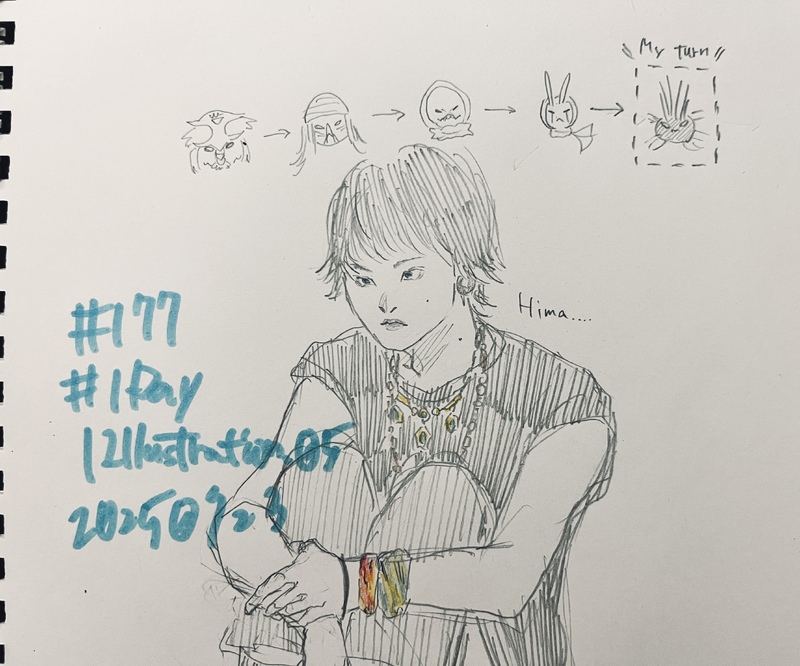 My turn
Hima....
#177
#1Day
1Illustration05
20250923